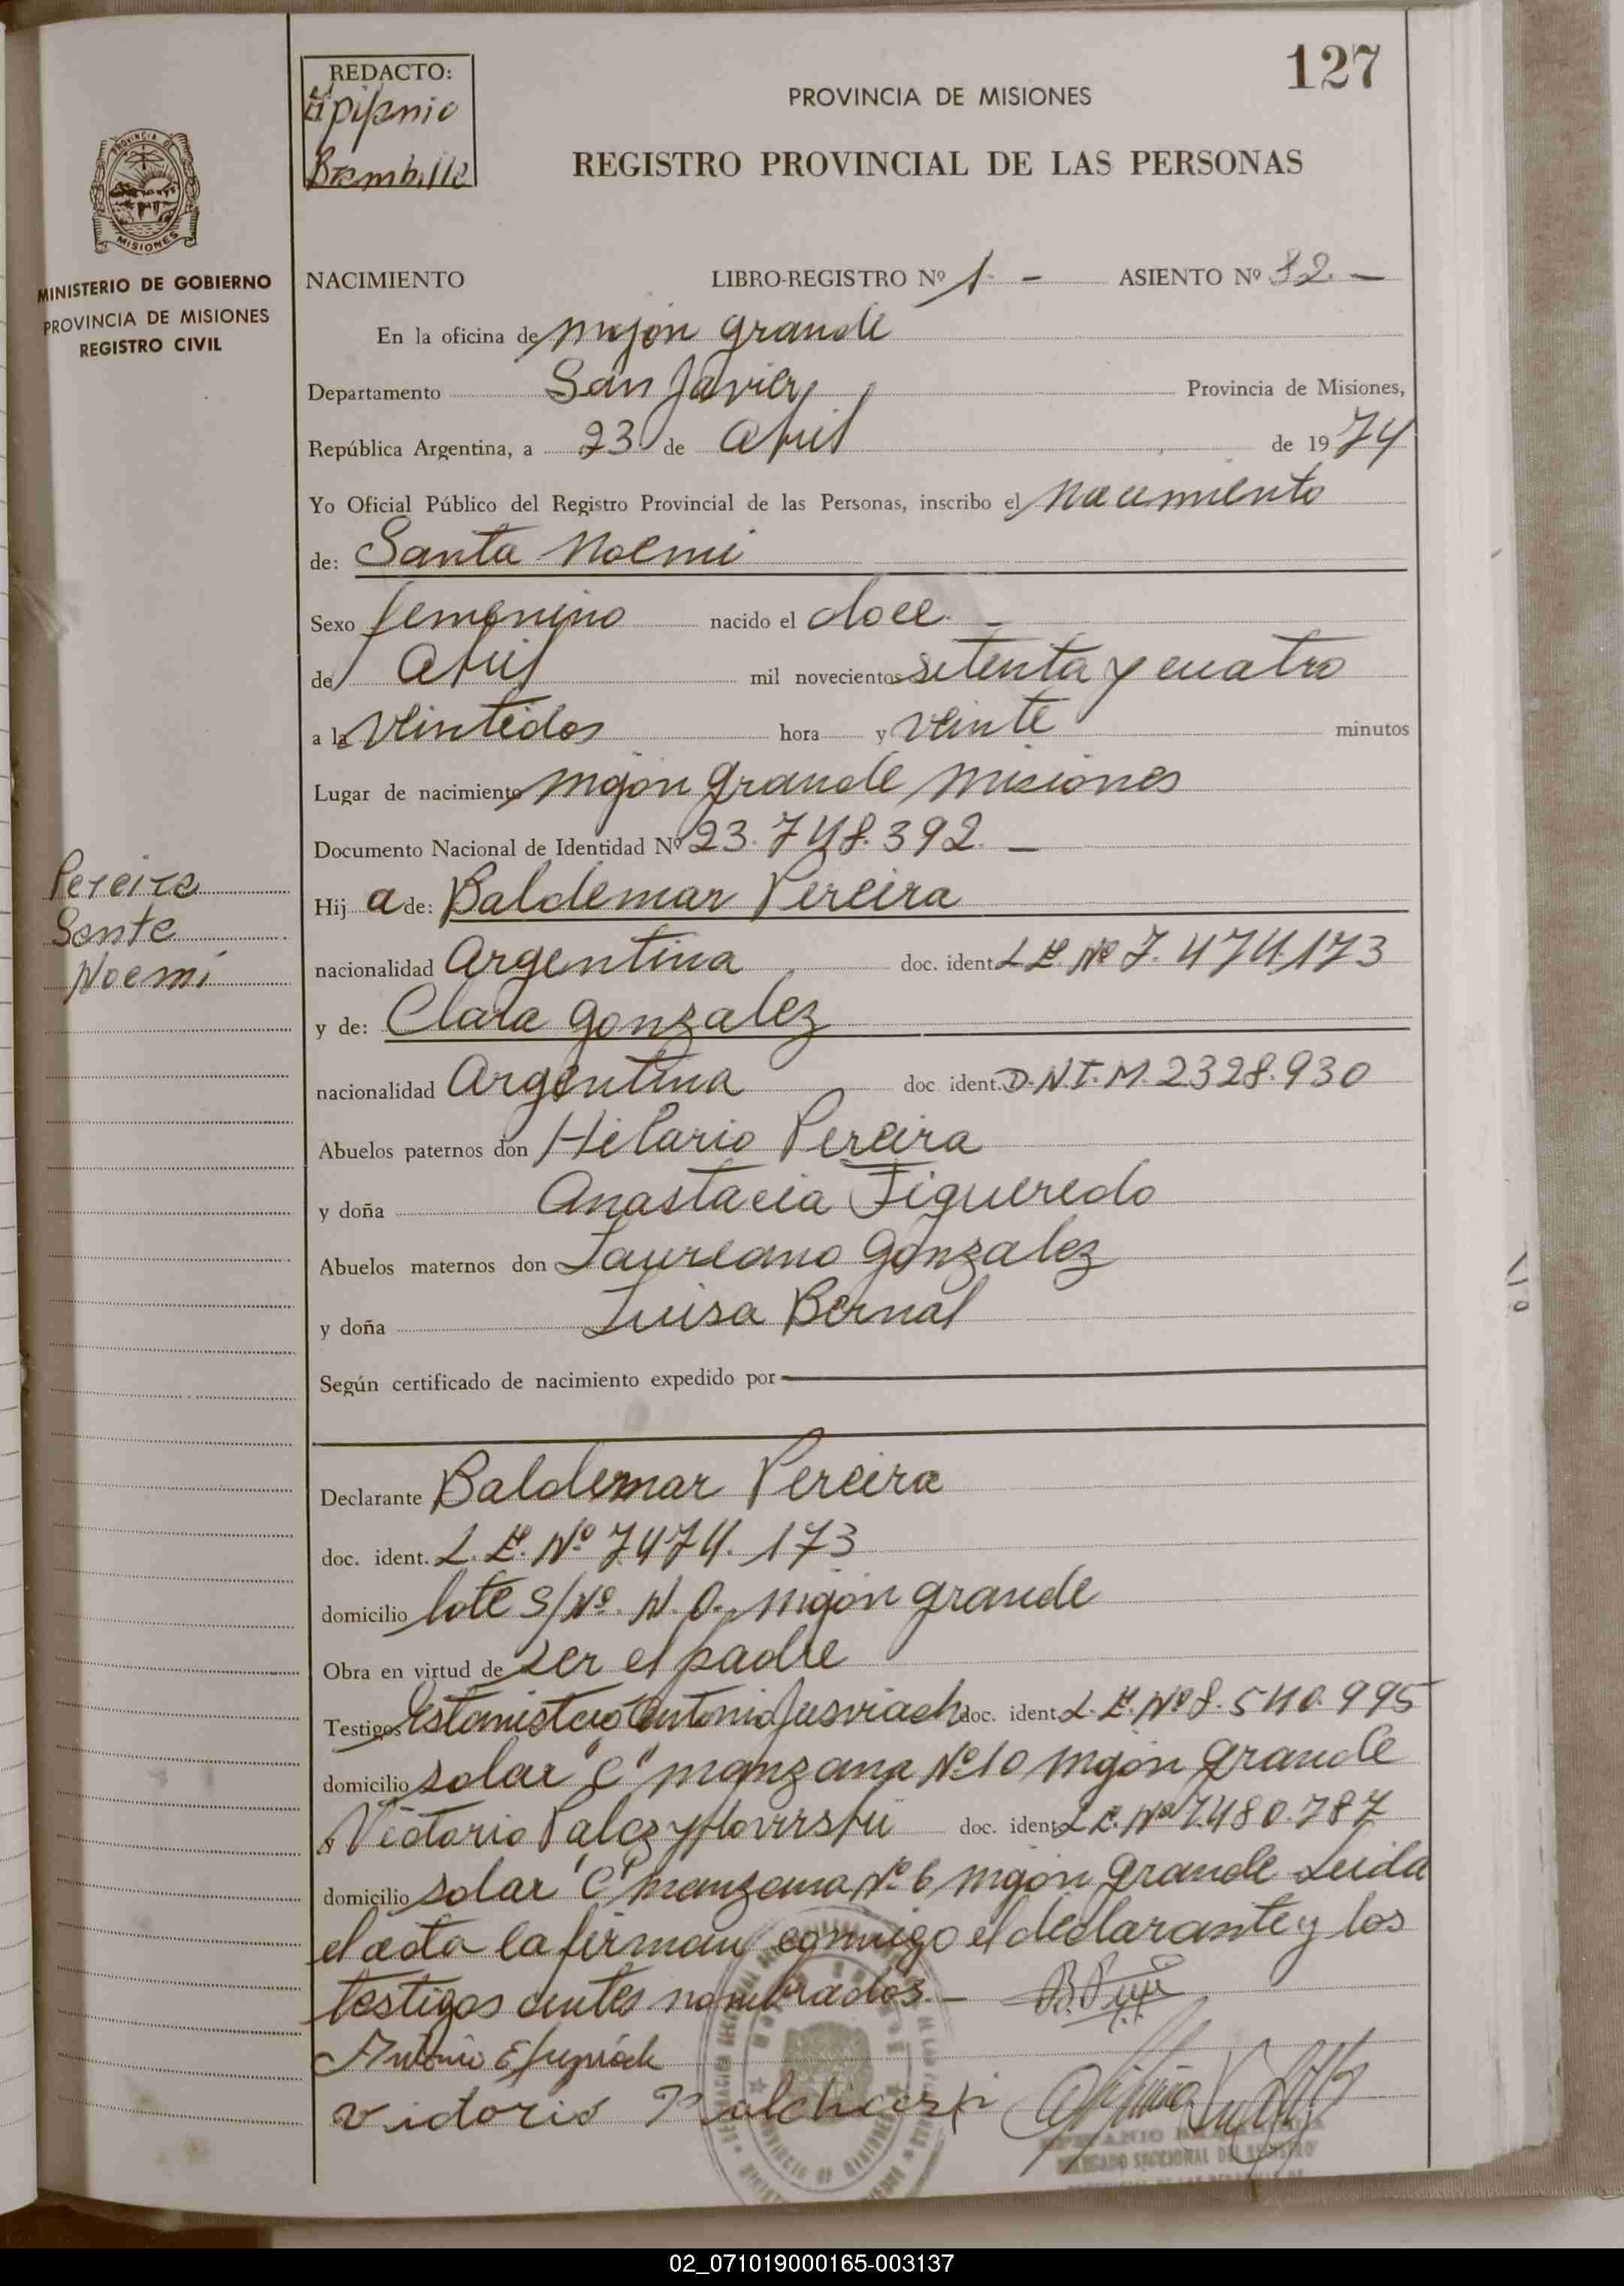 127
REDACTO:
Epifanio
Brambilla
PROVINCIA DE MISIONES
REGISTRO PROVINCIAL DE LAS PERSONAS
PROVINCIA DE
MISIONES
MINISTERIO DE GOBIERNO
PROVINCIA DE MISIONES
REGISTRO CIVIL
NACIMIENTO LIBRO-REGISTRO Nº 1.- ASIENTO Nº 82.-
En la oficina de Mojón grande
Departamento San Javier Provincia de Misiones,
República Argentina, a 23 de Abril de 1974
Yo Oficial Público del Registro Provincial de las Personas, inscribo el Nacimiento
de: Santa Noemi
Sexo femenino nacido el doce.-
de Abril mil novecientos setenta y cuatro
a la veintidos hora y veinte minutos
Lugar de nacimiento Mojón grande Misiones
Documento Nacional de Identidad Nº 23.748.392.-
Pereira
Santa
Noemi
Hij a de: Baldemar Pereira
nacionalidad Argentina doc. ident. L.E. Nº 7.474.173
y de: Clara Gonzalez
nacionalidad Argentina doc. ident. D.N.I.M. 2328.930
Abuelos paternos don Hilario Pereira
y doña Anastacia Figueredo
Abuelos maternos don Laureano Gonzalez
y doña Luisa Bernal
Según certificado de nacimiento expedido por
Declarante Baldemar Pereira
doc. ident. L.E. Nº 7.474.173
domicilio lote S/Nº. N.O. Mojón grande
Obra en virtud de ser el padre
Testigos Antonio doc. ident. L.E. Nº 8.540.995
domicilio solar "C" manzana Nº 10 Mojón grande
y Victorio doc. ident. L.E. Nº 7.480.787
domicilio solar "C" manzana Nº 6 Mojón grande Leida
el acta la firman conmigo el declarante y los
testigos antes nombrados.-
Victorio
DELEGADO SECCIONAL DEL REGISTRO
02_071019000165-003137